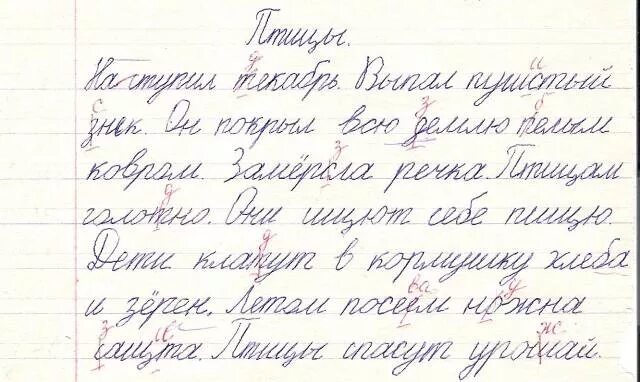 Птицы.
Наступил текабрь. Выпал пушстый
знек. Он покрыл всю семлю телым
ковром. Замёрсла речка. Птицам
голотно. Они ищют себе пищю.
Дети клатут в кормушку хлеба
и зёрен. Летом посеем ножна
сащта. Птицы спасут урошай.